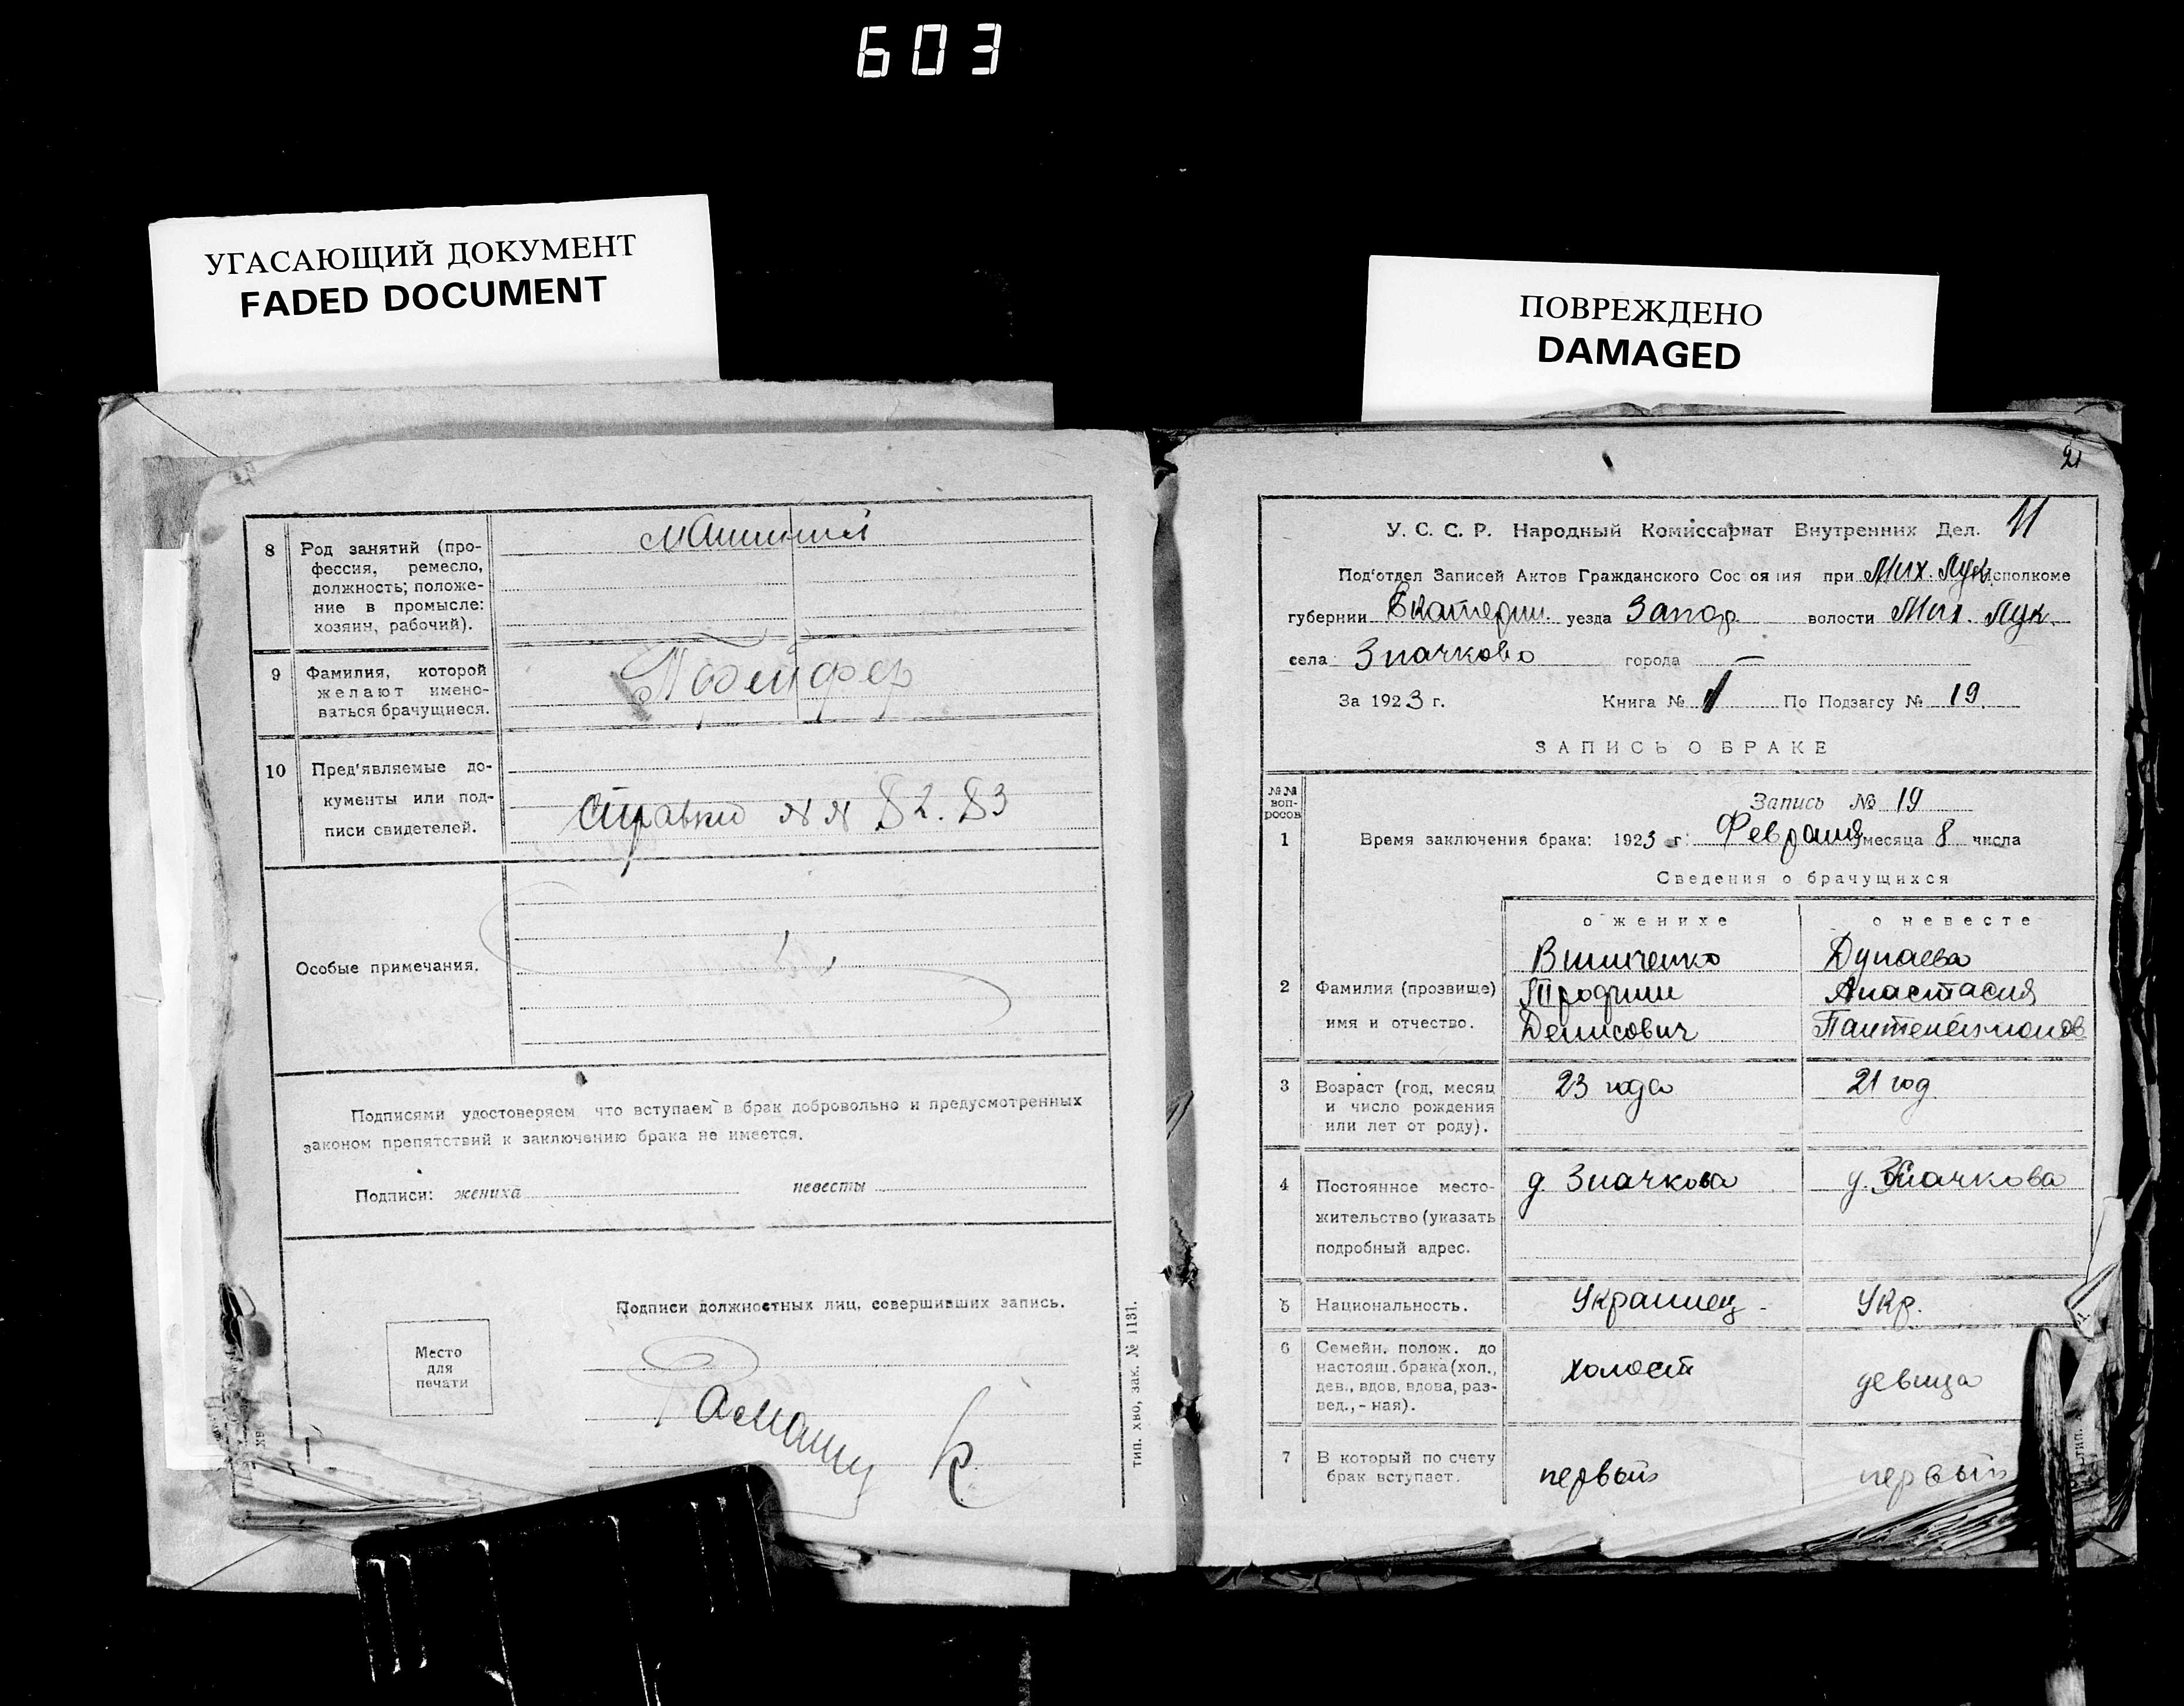 603
УГАСАЮЩИЙ ДОКУМЕНТ
FADED DOCUMENT
ПОВРЕЖДЕНО
DAMAGED
8 Род занятий (про-
фессия, ремесло,
должность; положе-
ние в промысле:
хозяин, рабочий).
9 Фамилия, которой
желают имено-
ваться брачущиеся.
10 Пред'являемые до-
кументы или под-
писи свидетелей.
Справки №№ 82. 83
Особые примечания.
Подписями удостоверяем что вступаем в брак добровольно и предусмотренных
законом препятствий к заключению брака не имеется.
Подписи: жениха невесты
Подписи должностных лиц, совершивших запись.
Место
для
печати
тип. хво, зак. № 1131.
21
11
У. С. С. Р. Народный Комиссариат Внутренних Дел.
Под'отдел Записей Актов Гражданского Состояния при Мих. Лук. исполкоме
губернии Екатерин. уезда Запор. волости Мих. Лук.
села Значково города —
За 1923 г. Книга № 1 По Подзагсу № 19.
ЗАПИСЬ О БРАКЕ
№№
воп-
росов
Запись № 19
1 Время заключения брака: 1923 г. Февраля месяца 8 числа
Сведения о брачущихся
о женихе о невесте
Виниченко Дунаева
2 Фамилия (прозвище) Трофим Анастасия
имя и отчество. Денисович Пантелеймонов
3 Возраст (год, месяц 23 года 21 год
и число рождения
или лет от роду).
4 Постоянное место- д. Значкова д. Значкова
жительство (указать
подробный адрес.
5 Национальность. Украинец Укр.
6 Семейн. полож. до
настоящ. брака (хол., холост девица
дев., вдов, вдова, раз-
вед., - ная).
7 В который по счету первый первый
брак вступает.